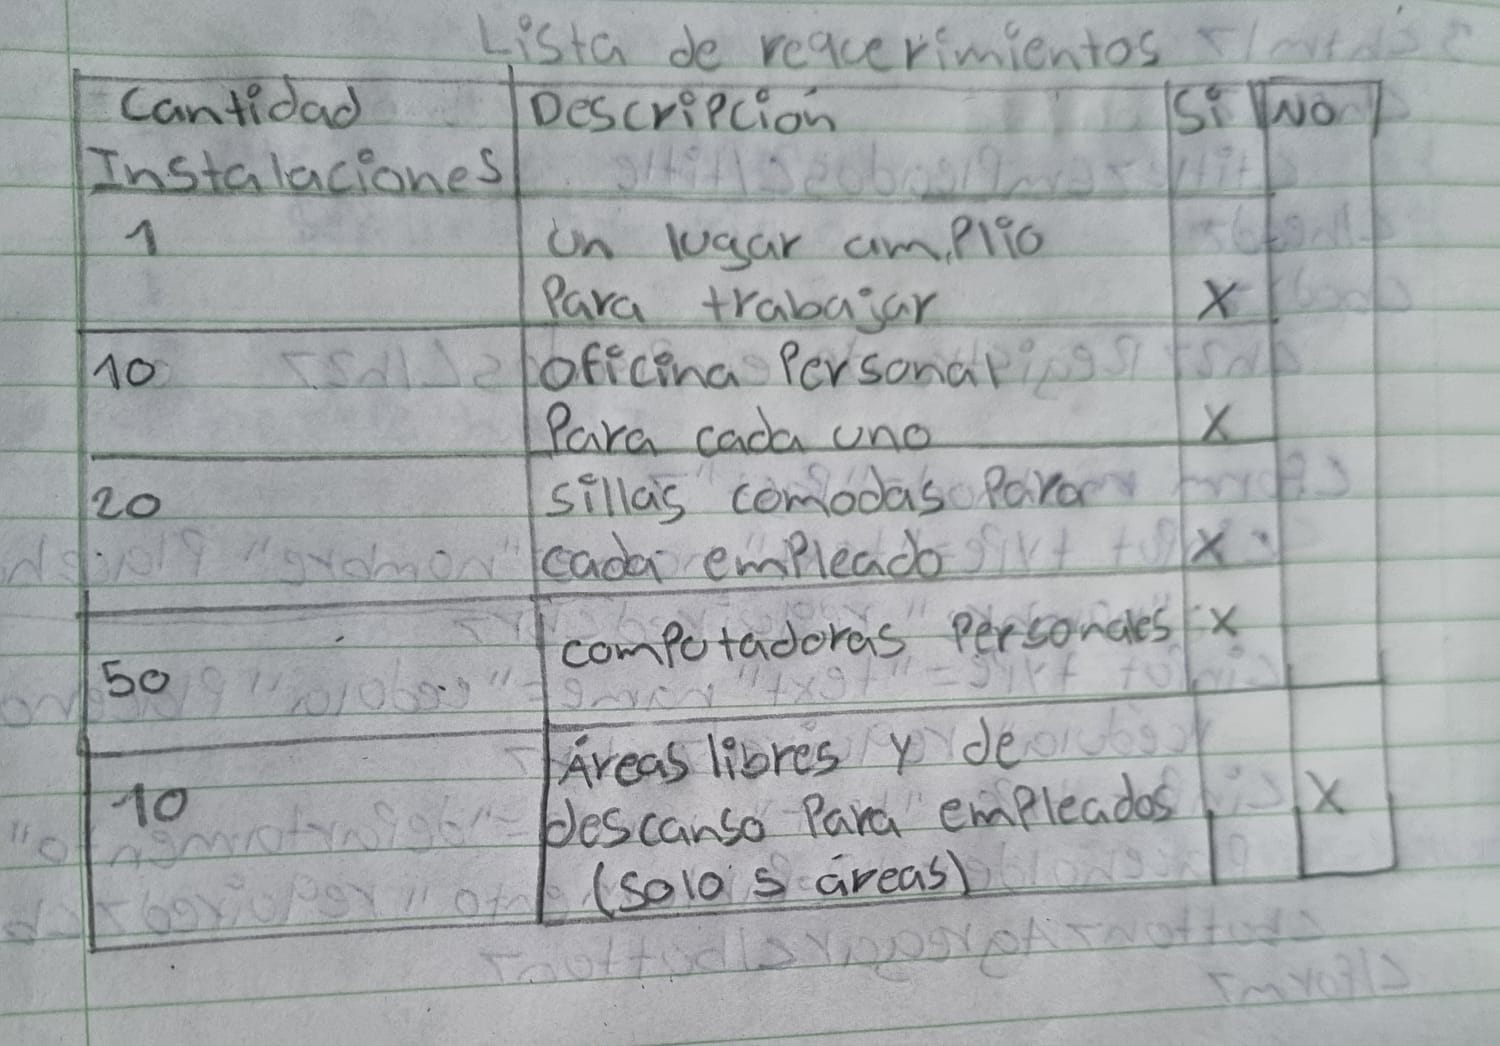 Lista de requerimientos
Cantidad Instalaciones Descripción Si No
1 Un lugar amplio
Para trabajar X
10 oficina Personal
Para cada uno X
20 sillas comodas Para
cada empleado X
50 computadoras Personales X
10 Áreas libres y de
descanso Para empleados X
(solo 5 áreas)